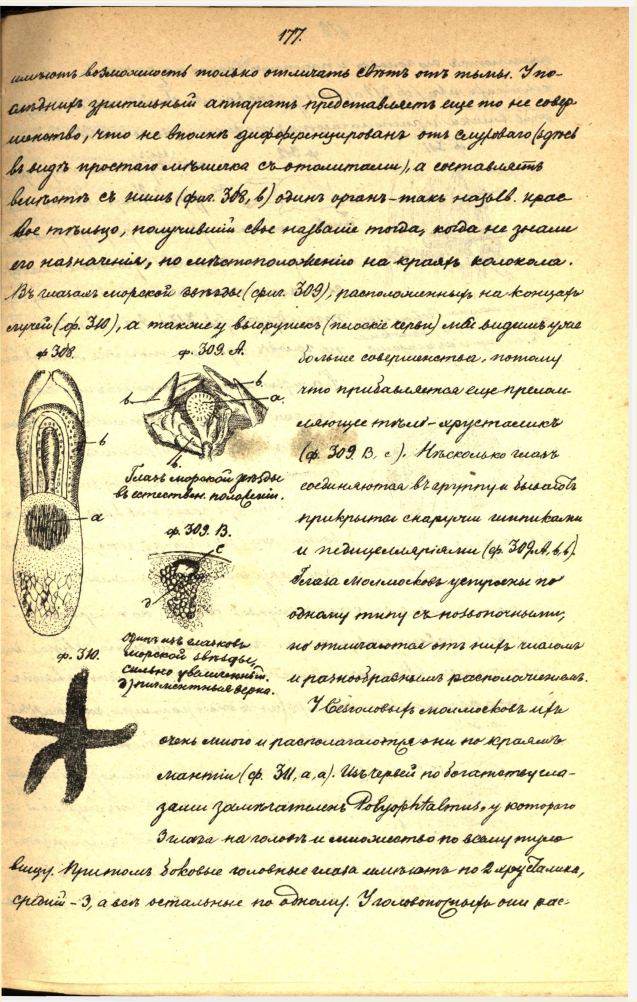 177.
имѣютъ возможность только отличать свѣтъ отъ тьмы. У по-
слѣднихъ зрительный аппаратъ представляетъ еще то не совер
шенство, что не вполнѣ дифференцированъ отъ слуховаго (здѣсь
въ видѣ простаго мѣшечка съ отолитами), а составляетъ
вмѣстѣ съ нимъ (фиг. 308, b) одинъ органъ – такъ назыв. крае
вое тѣльцо, получившій свое названіе тогда, когда не знали
его назначенія, по мѣстоположенію на краяхъ колокола.
Въ глазахъ морской звѣзды (фиг. 309), расположенныхъ на концахъ
лучей (ф. 310), а также у (плоскіе черви) мы видимъ уже
ф 308.
b
a
ф. 309. А.
b
b.
a.
b.
Глазъ морской звѣзды
въ естествен. положеніи.
ф. 309. В.
c
д
одинъ изъ глазковъ
морской звѣзды,
сильно увеличенный.
д) пигментныя зерна.
ф. 310.
больше совершенства, потому
что прибавляется еще прелом-
ляющее тѣло – хрусталикъ
(ф. 309. В, с). Нѣсколько глазъ
соединяются въ группу и бываютъ
прикрыты снаружи шипиками
и педицелляріями (ф. 309. А, b, b).
Глаза моллюсковъ устроены по
одному типу съ позвоночными,
но отличаются отъ нихъ числомъ
и разнообразнымъ расположеніемъ.
У безголовыхъ моллюсковъ ихъ
очень много и располагаются они по краямъ
мантіи (ф. 311, а, а). Изъ червей по богатству гла-
зами замѣчателенъ Polyophtalmus, у котораго
3 глаза на головѣ и множество по всему туло
вищу. Притомъ боковые головные глаза имѣютъ по 2 хрусталика,
средній – 3, а всѣ остальные по одному. У головоногихъ они рас-